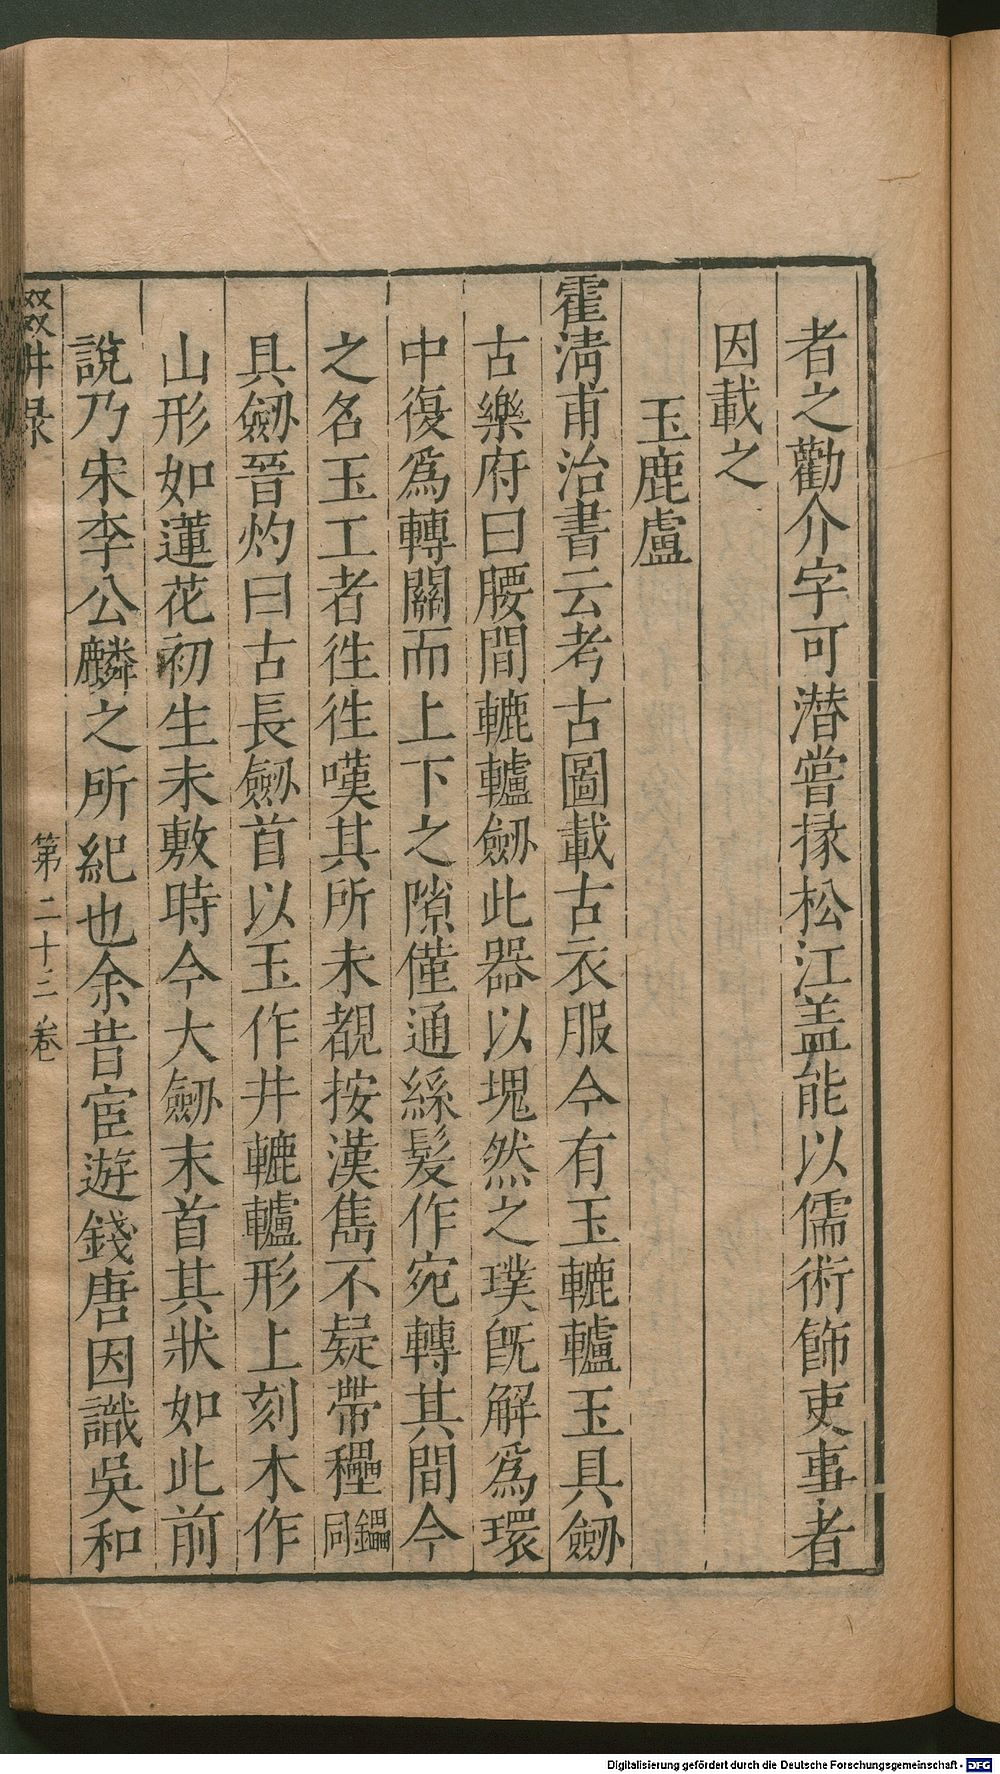 者之勸介字可潜嘗掾松江盖能以儒術飾吏事者
因載之
玉鹿盧
霍淸甫治書云考古圖載古衣服今有玉轆轤玉具劒
古樂府曰腰間轆轤劒此器以塊然之璞旣解爲環
中復爲轉關而上下之隙僅通絲髮作宛轉其間今
之名玉工者徃徃嘆其所未覩按漢雋不疑帶櫑鑘同
具劒晉灼曰古長劒首以玉作井轆轤形上刻木作
山形如蓮花初生未敷時今大劒末首其狀如此前
說乃宋李公麟之所紀也余昔宦遊錢唐因識吳和
輟畊录
第二十三卷
Digitalisierung gefördert durch die Deutsche Forschungsgemeinschaft - DFG